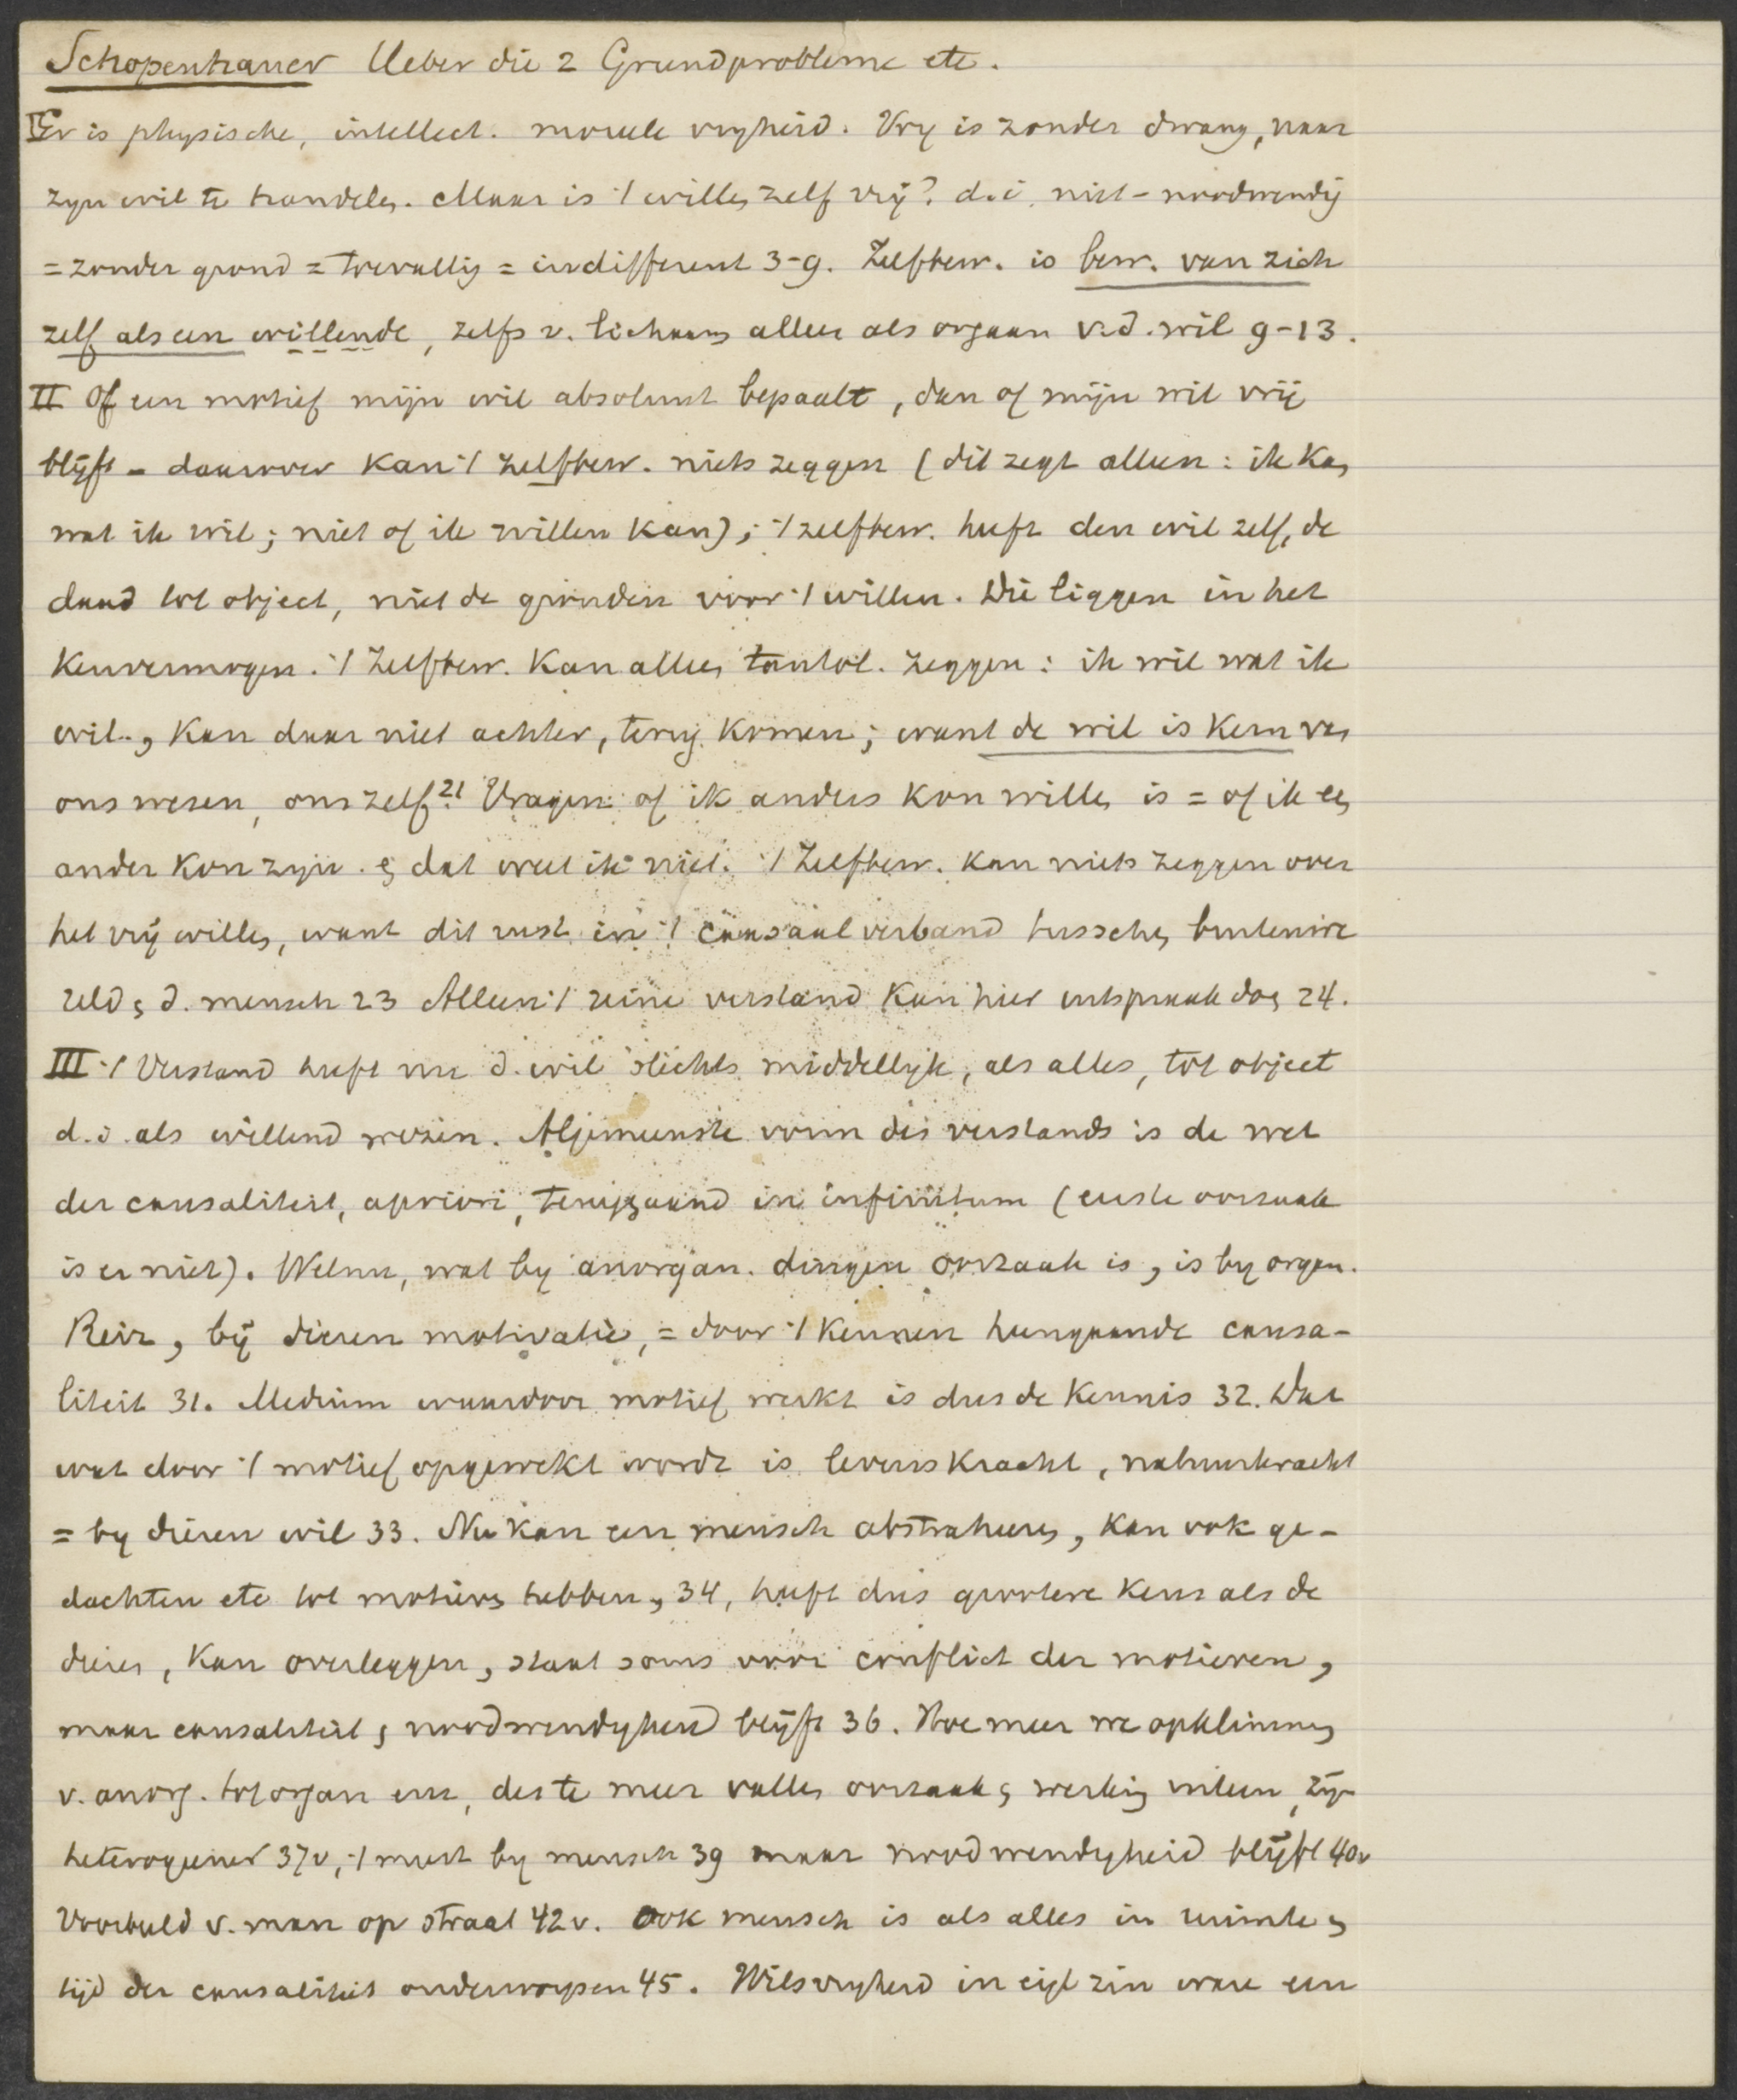 Schopenhauer Ueber die 2 Grundprobleme etc.
I Er is physische, intellect. moreele vryheid. Vry is zonder dwang, naar
zyn wil te handelen. Maar is 't willen zelf vrij? d.i. niet-noodwendig
= zonder grond = toevallig = indifferent 3-9. Zelfbew. is bew. van zich
zelf als een willende, zelfs v. lichaam alleen als orgaan v.d. wil 9-13.
II Of een motief mijn wil absoluut bepaalt, dan of mijn wil vrij
blijft - daarover kan 't zelfbew. niets zeggen (dit zegt alleen: ik kan
wat ik wil; niet of ik willen kan); 't zelfbew. heeft den wil zelf, de
daad tot object, niet de gronden voor 't willen. Die liggen in het
kenvermogen. 't Zelfbew. kan alleen tautol. zeggen: ik wil wat ik
wil, kan daar niet achter, terug komen; want de wil is kern van
ons wezen, ons zelf 21 Vragen: of ik anders kon willen is = of ik een
ander kon zyn. en dat weet ik niet. 't Zelfbew. kan niets zeggen over
het vrij willen, want dit rust in 't causaal verband tusschen buitenwe
reld en d. mensch 23 Alleen 't reine verstand kan hier uitspraak doen 24.
III 't Verstand heeft nu d. wil slechts middellyk, als alles, tot object
d.i. als willend wezen. Algemeenste vorm des verstands is de wet
der causaliteit, apriori, teruggaand in infinitum (eerste oorzaak
is er niet). Welnu, wat by anorgan. dingen oorzaak is, is by organ.
Reiz, bij dieren motivatie, = door 't kennen heengaande causa-
liteit 31. Medium waardoor motief werkt is dus de kennis 32. Dat
wat door 't motief opgewekt wordt is levenskracht, natuurkracht
= by dieren wil 33. Nu kan een mensch abstraheeren, kan ook ge-
dachten etc tot motieven hebben, 34, heeft dus grootere keus als de
dieren, kan overleggen, staat soms voor conflict der motieven,
maar causaliteit en noodwendigheid blijft 36. Hoe meer we opklimmen
v. anorg. tot organ enz, des te meer vallen oorzaak en werking uiteen, zyn
heterogener 37v, 't meest by mensch 39 maar noodwendigheid blijft 40v
Voorbeeld v. man op straat 42v. Ook mensch is als alles in ruimte en
tijd der causaliteit onderworpen 45. Wilsvryheid in eigl zin ware een